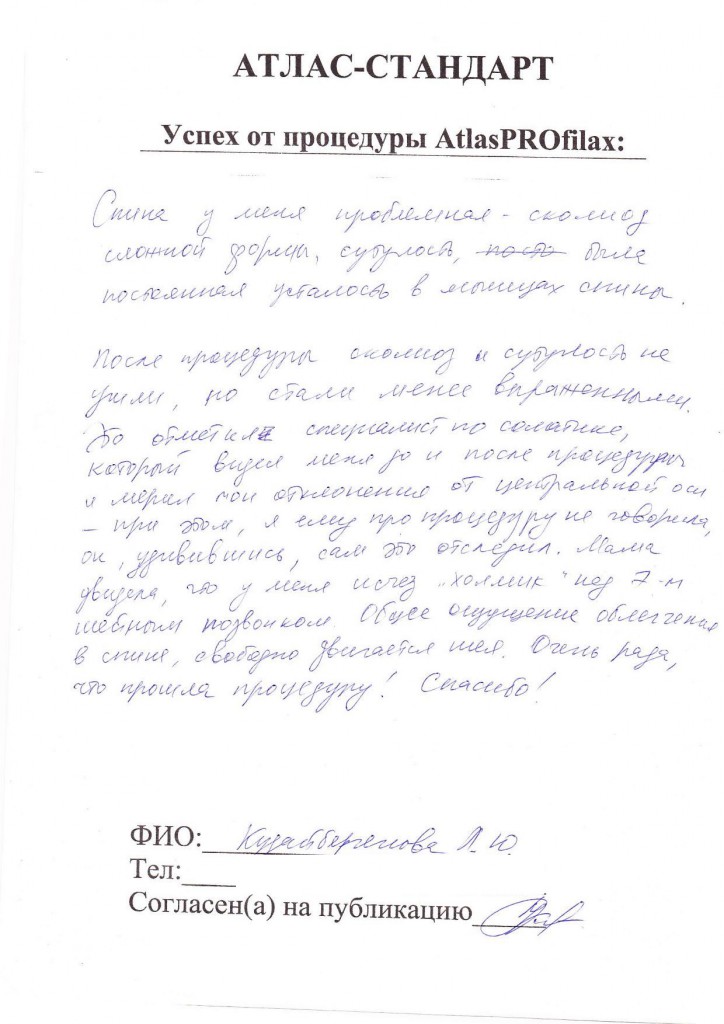 АТЛАС-СТАНДАРТ
Успех от процедуры AtlasPROfilax:
Спина у меня проблемная - сколиоз
сложной формы, сутулость, была
постоянная усталость в мышцах спины.
После процедуры сколиоз и сутулость не
ушли, но стали менее выраженными.
Это отметил специалист по соматике,
который видел меня до и после процедуры
и мерял мои отклонения от центральной оси
– при этом, я ему про процедуру не говорила,
он, удивившись, сам это отследил. Мама
увидела, что у меня исчез "холмик" над 7-м
шейным позвонком. Общее ощущение облегчения
в спине, свободно двигается шея. Очень рада,
что прошла процедуру! Спасибо!
ФИО: Кудайбергенова Л. Ю.
Тел:____
Согласен(а) на публикацию